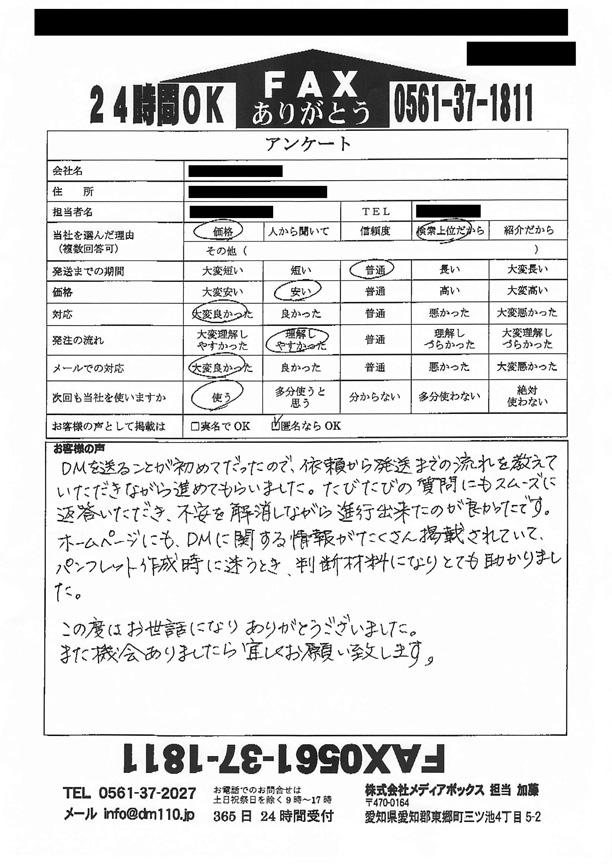 24時間OK
FAX
ありがとう
0561-37-1811
アンケート
会社名
住 所
担当者名 TEL
当社を選んだ理由 価格 人から聞いて 信頼度 検索上位だから 紹介だから
(複数回答可) その他 ( )
発送までの期間 大変短い 短い 普通 長い 大変長い
価格 大変安い 安い 普通 高い 大変高い
対応 大変良かった 良かった 普通 悪かった 大変悪かった
発注の流れ 大変理解しやすかった 理解しやすかった 普通 理解しづらかった 大変理解しづらかった
メールでの対応 大変良かった 良かった 普通 悪かった 大変悪かった
次回も当社を使いますか 使う 多分使うと思う 分からない 多分使わない 絶対使わない
お客様の声として掲載は □実名でOK ☑匿名ならOK
お客様の声
DMを送ることが初めてだったので、依頼から発送までの流れを教えて
いただきながら進めてもらいました。たびたびの質問にもスムーズに
返答いただき、不安を解消しながら進行出来たのが良かったです。
ホームページにも、DMに関する情報がたくさん掲載されていて、
パンフレット作成時に迷うとき、判断材料になりとても助かりまし
た。
この度はお世話になりありがとうございました。
また機会ありましたら宜しくお願い致します。
FAX0561-37-1811
TEL 0561-37-2027
メール info@dm110.jp
お電話でのお問合せは
土日祝祭日を除く9時～17時
365日 24時間受付
株式会社メディアボックス 担当 加藤
〒470-0164
愛知県愛知郡東郷町三ツ池4丁目5-2